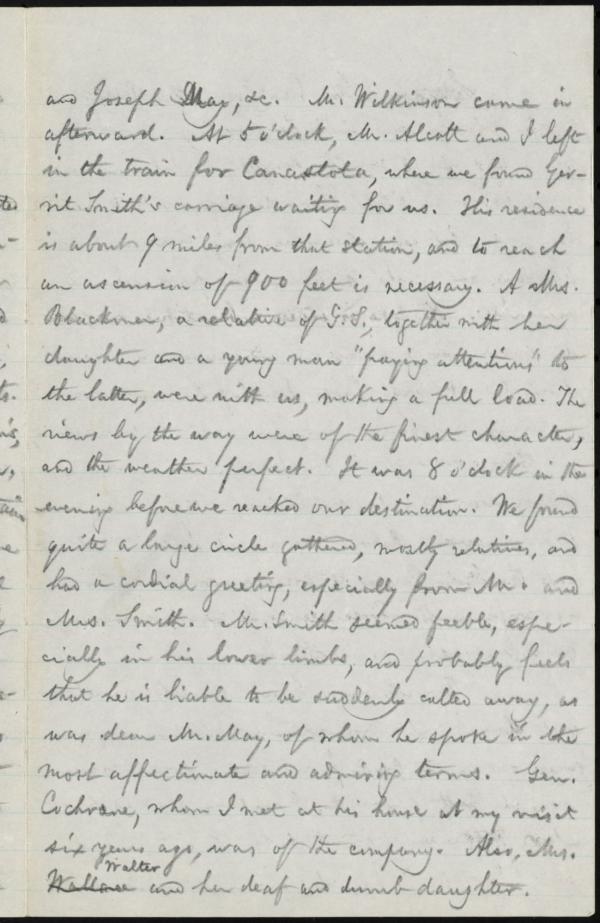 and Joseph May, &c. Mr. Wilkinson came in
afterward. At 5 o'clock, Mr. Alcott and I left
in the train for Canastota, where we found Ger-
rit Smith's carriage waiting for us. His residence
is about 9 miles from that station, and to reach
an ascension of 900 feet is necessary. A Mrs.
Blackmer, a relative of G. S., together with her
daughter and a young man "paying attentions" to
the latter, were with us, making a full load. The
views by the way were of the finest character,
and the weather perfect. It was 8 o'clock in the
evening before we reached our destination. We found
quite a large circle gathered, mostly relatives, and
had a cordial greeting, especially from Mr. and
Mrs. Smith. Mr. Smith seemed feeble, espe-
cially in his lower limbs, and probably feels
that he is liable to be suddenly called away, as
was dear Mr. May, of whom he spoke in the
most affectionate and admiring terms. Gen.
Cochrane, whom I met at his house at my visit
six years ago, was of the company. Also, Mrs.
Walter
Wallace and her deaf and dumb daughter.